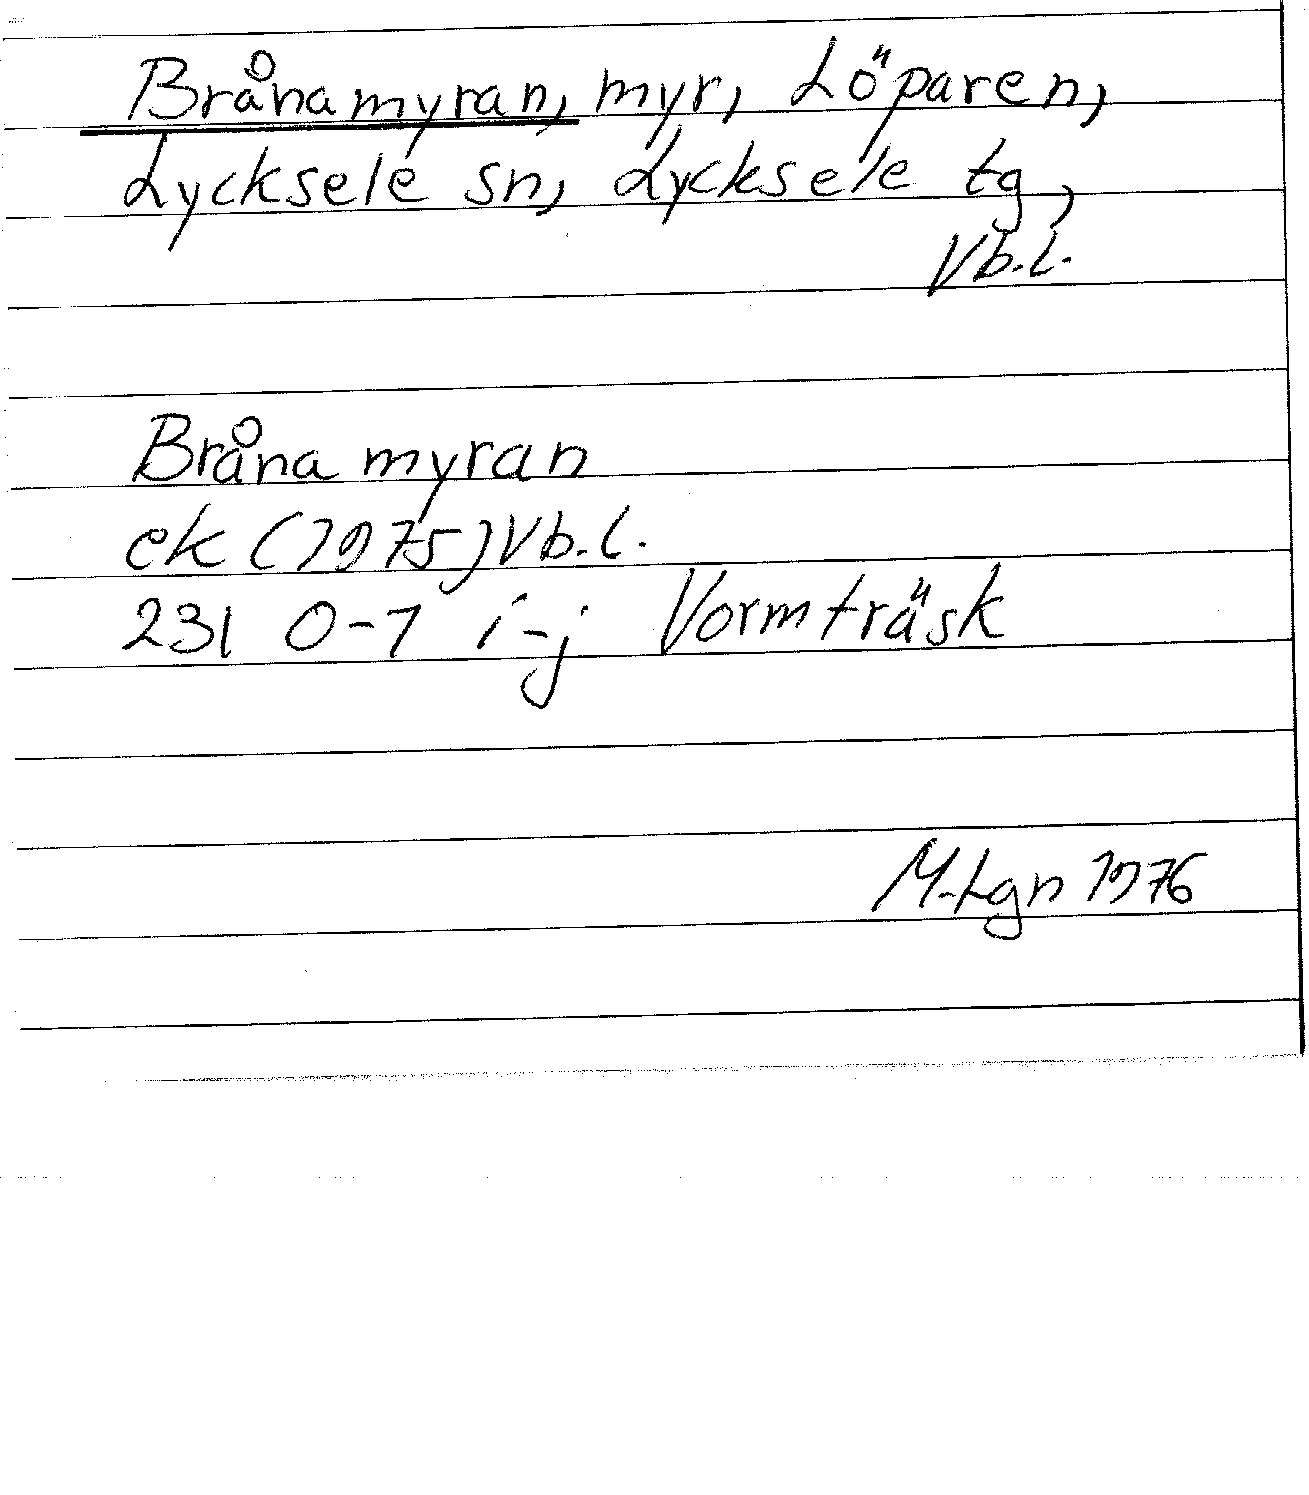 Brånamyran, myr, Löparen,
Lycksele sn, Lycksele tg,
Vb.l.
Bråna myran
ek (1975) Vb.l.
231 0-1 i-j Vormträsk
M.Lgn 1976